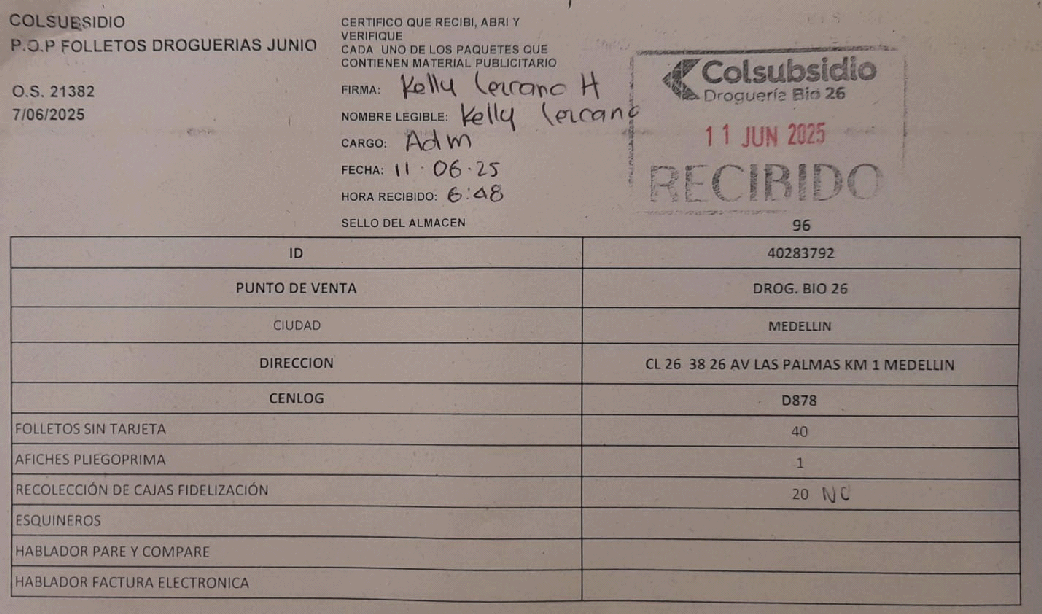 COLSUBSIDIO
P.O.P FOLLETOS DROGUERIAS JUNIO
O.S. 21382
7/06/2025
CERTIFICO QUE RECIBI, ABRI Y
VERIFIQUE
CADA UNO DE LOS PAQUETES QUE
CONTIENEN MATERIAL PUBLICITARIO
FIRMA: Kelly Lercano H
NOMBRE LEGIBLE: Kelly Lercano
CARGO: Adm
FECHA: 11·06·25
HORA RECIBIDO: 6:48
SELLO DEL ALMACEN
Colsubsidio
Droguería Bio 26
11 JUN 2025
RECIBIDO
96
ID 40283792
PUNTO DE VENTA DROG. BIO 26
CIUDAD MEDELLIN
DIRECCION CL 26 38 26 AV LAS PALMAS KM 1 MEDELLIN
CENLOG D878
FOLLETOS SIN TARJETA 40
AFICHES PLIEGOPRIMA 1
RECOLECCIÓN DE CAJAS FIDELIZACIÓN 20 NO
ESQUINEROS
HABLADOR PARE Y COMPARE
HABLADOR FACTURA ELECTRONICA